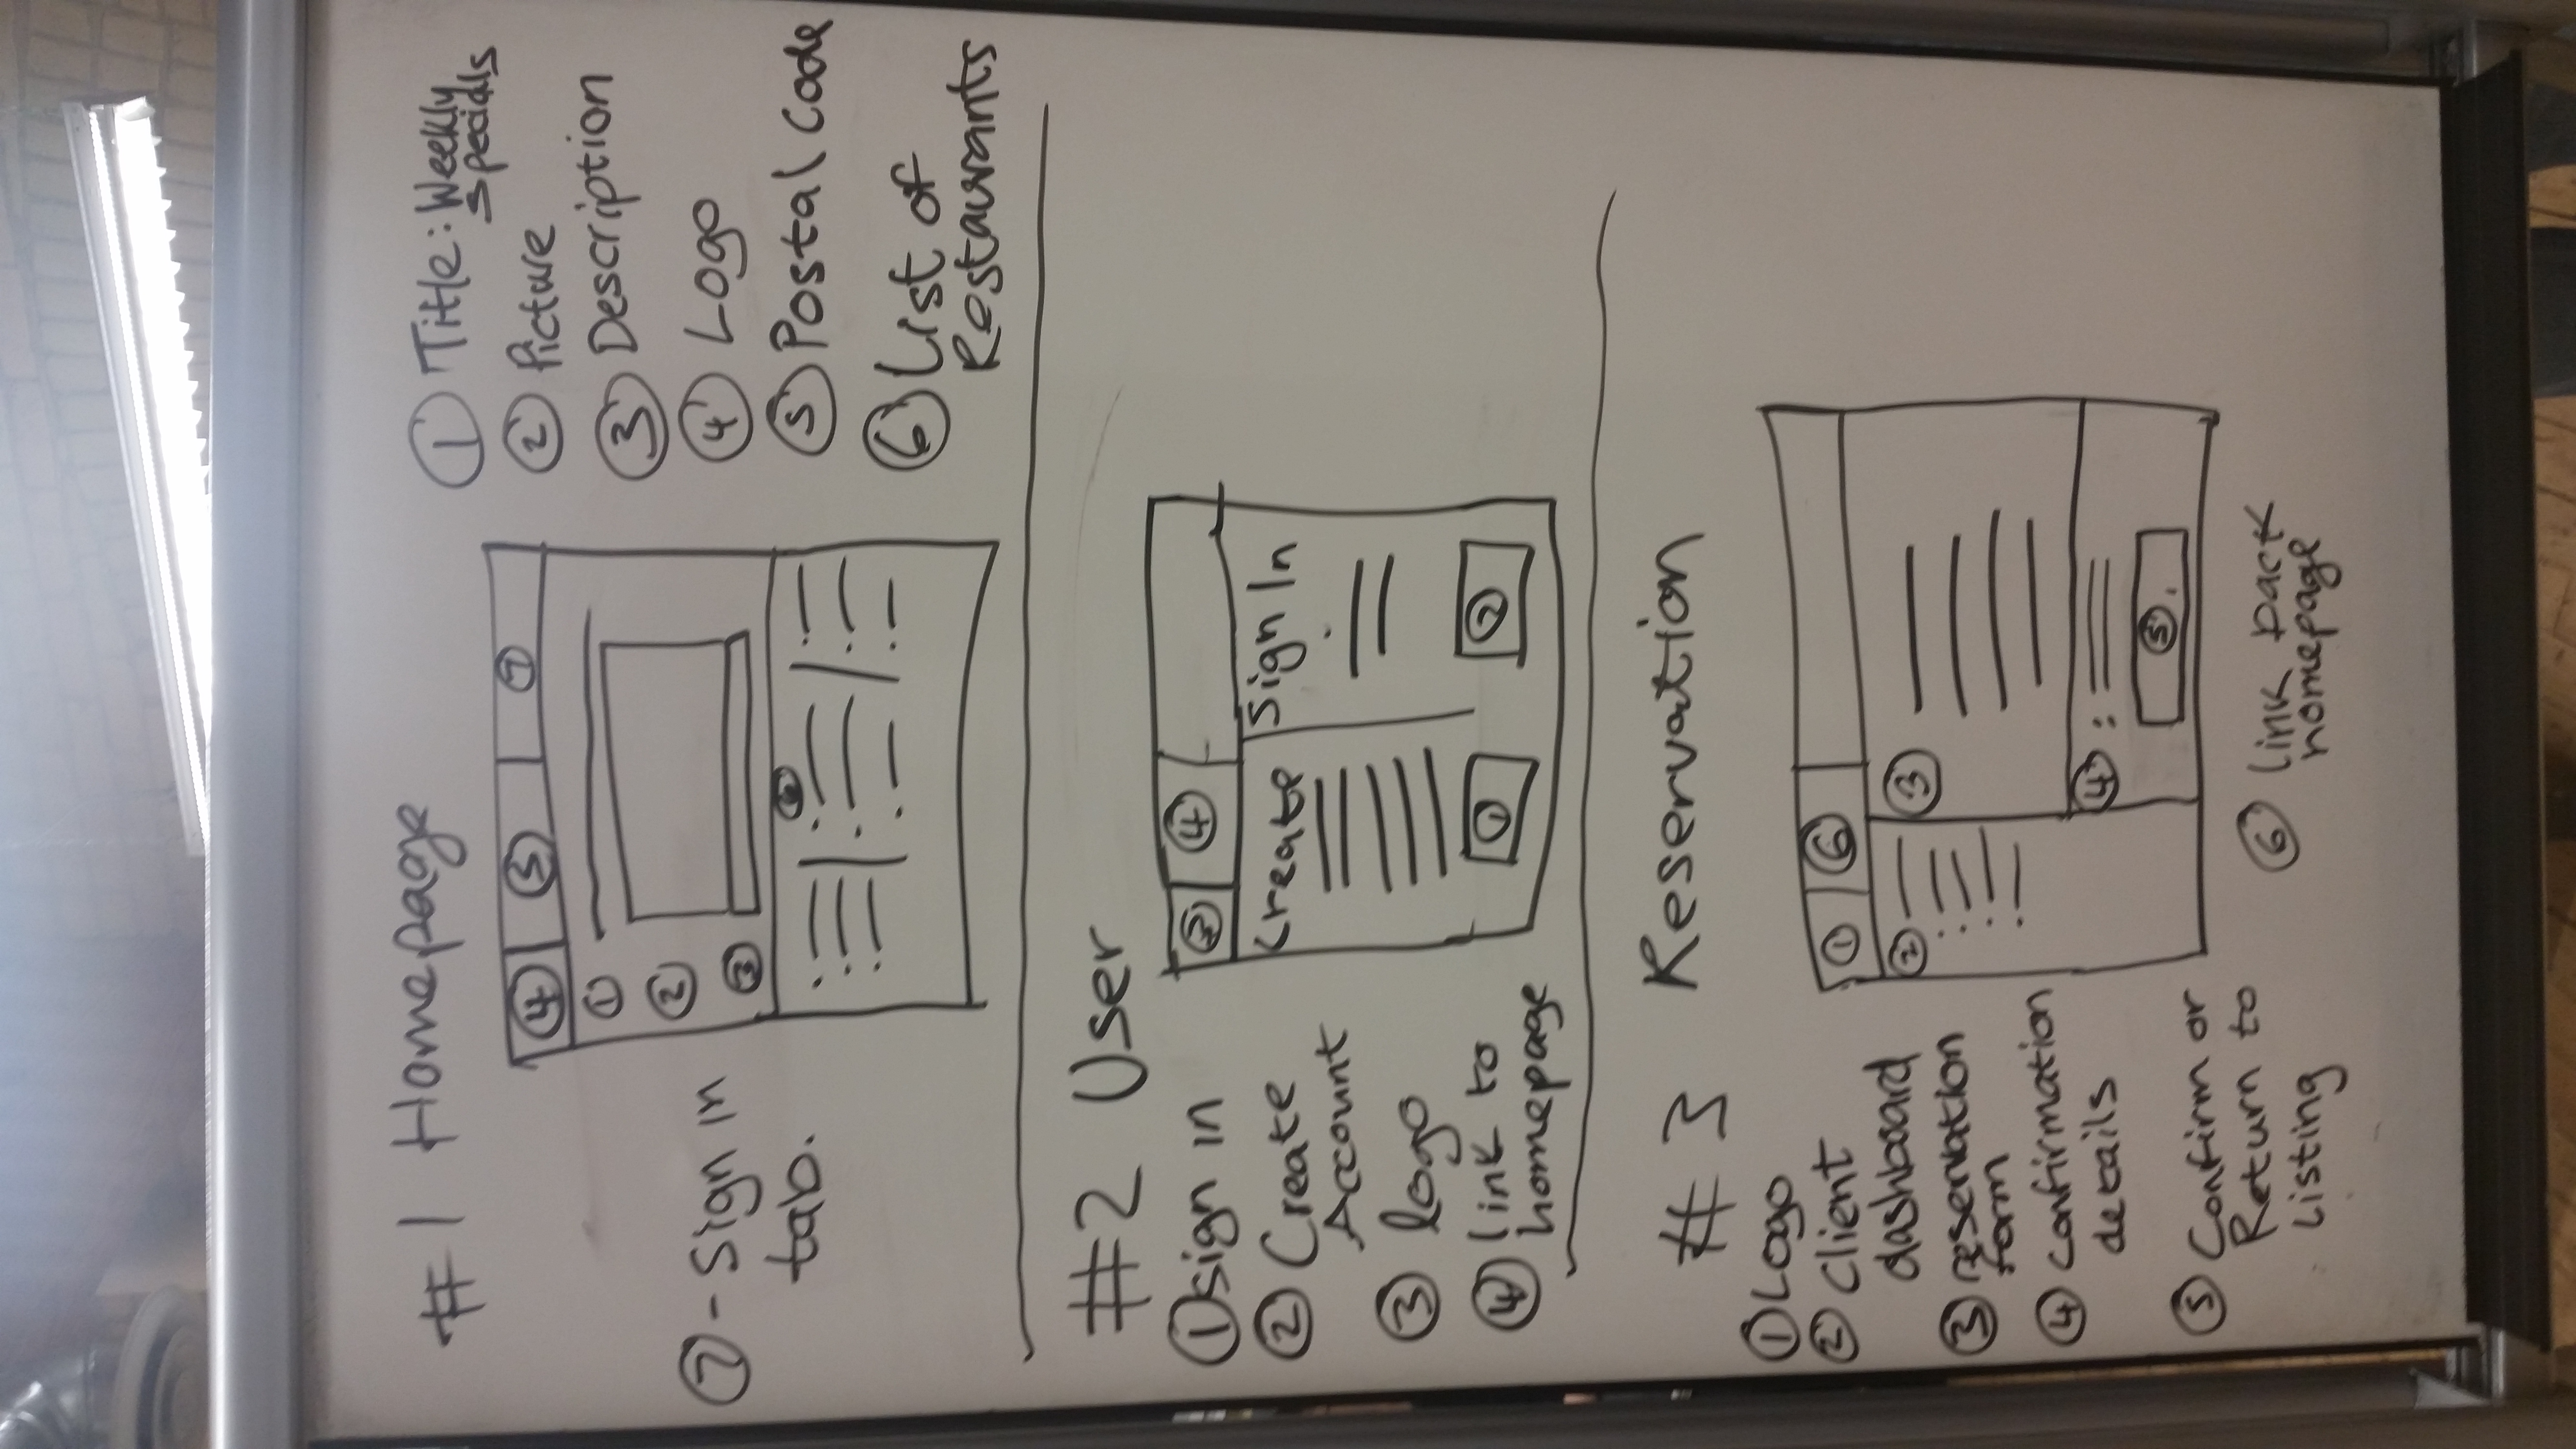 #1 Homepage
① Title: Weekly
specials
② Picture
③ Description
④ Logo
⑤ Postal Code
⑥ List of
Restaurants
⑦ - Sign in
tab.
④ ⑤ ⑦
①
②
③
⑥
#2 User
① sign in
② Create
Account
③ logo
④ link to
homepage
③ ④
Create Sign In
① ②
#3 Reservation
① Logo
② Client
dashboard
③ reservation
form
④ confirmation
details
⑤ Confirm or
Return to
Listing
① ⑥
② ③
④ :
⑤
⑥ link back
homepage